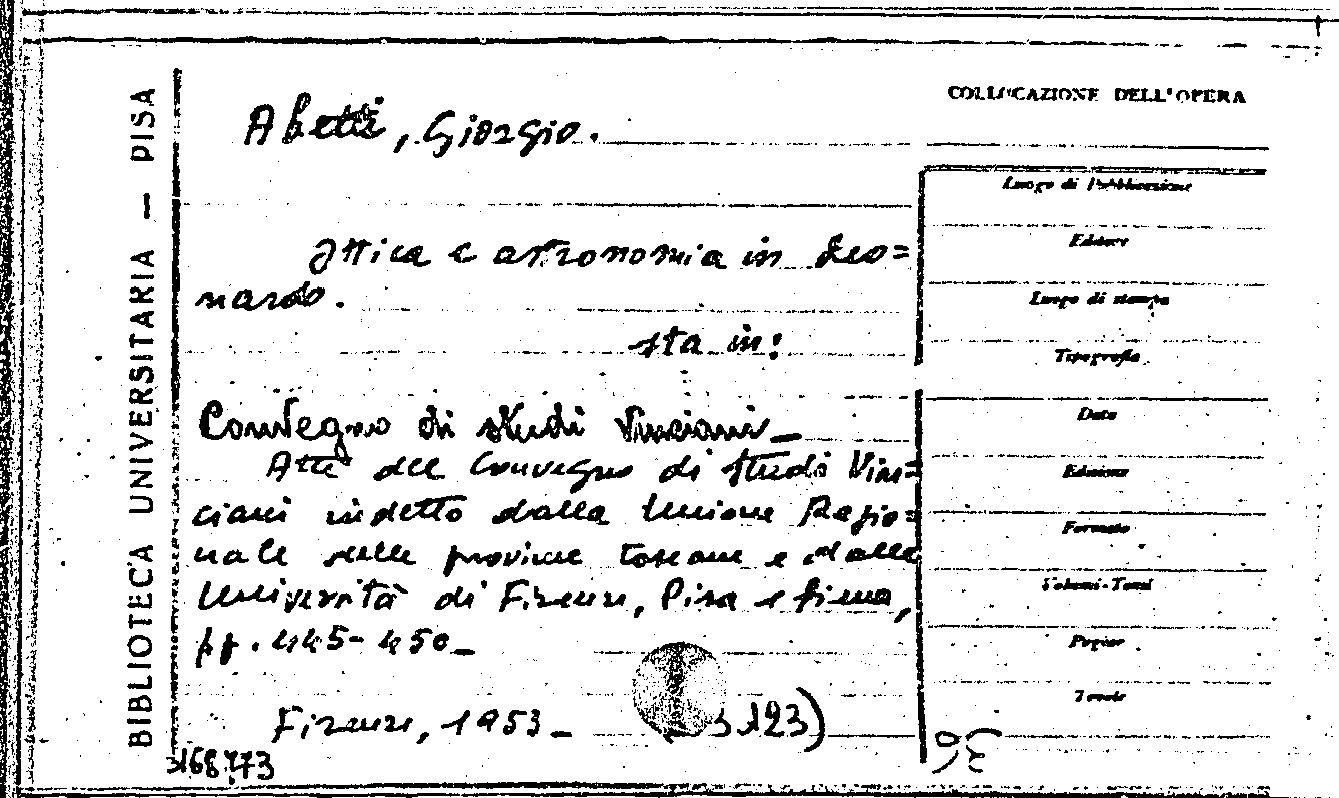 BIBLIOTECA UNIVERSITARIA — PISA
COLLOCAZIONE DELL'OPERA
Abetti, Giorgio.
Luogo di Pubblicazione
Editore
Luogo di stampa
Tipografia
Data
Edizione
Formato
Volumi-Tomi
Pagine
Tavole
Ottica e astronomia in Leo=
nardo.
sta in:
Convegno di studi Vinciani_
Atti del Convegno di Studi Vin=
ciani indetto dalla Unione Regio=
nale delle provincie toscane e dalle
Università di Firenze, Pisa e Siena,
pp. 445-450_
Firenze, 1953_
3123)
168773